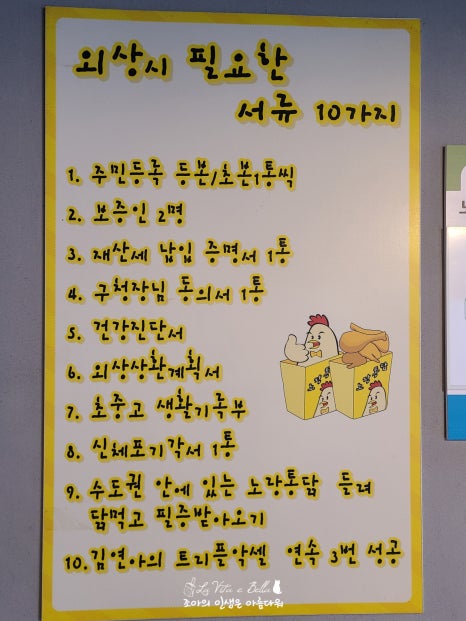 외상시 필요한
서류 10가지
1. 주민등록 등본/초본1통씩
2. 보증인 2명
3. 재산세 납입 증명서 1통
4. 구청장님 동의서 1통
5. 건강진단서
6. 외상상환계획서
7. 초중고 생활기록부
8. 신체포기각서 1통
9. 수도권 안에 있는 노랑통닭 들려
닭먹고 필증받아오기
10. 김연아의 트리플악셀 연속 3번 성공
노랑통닭
노랑통닭
La Vita e Bella
조아의 인생은 아름다워